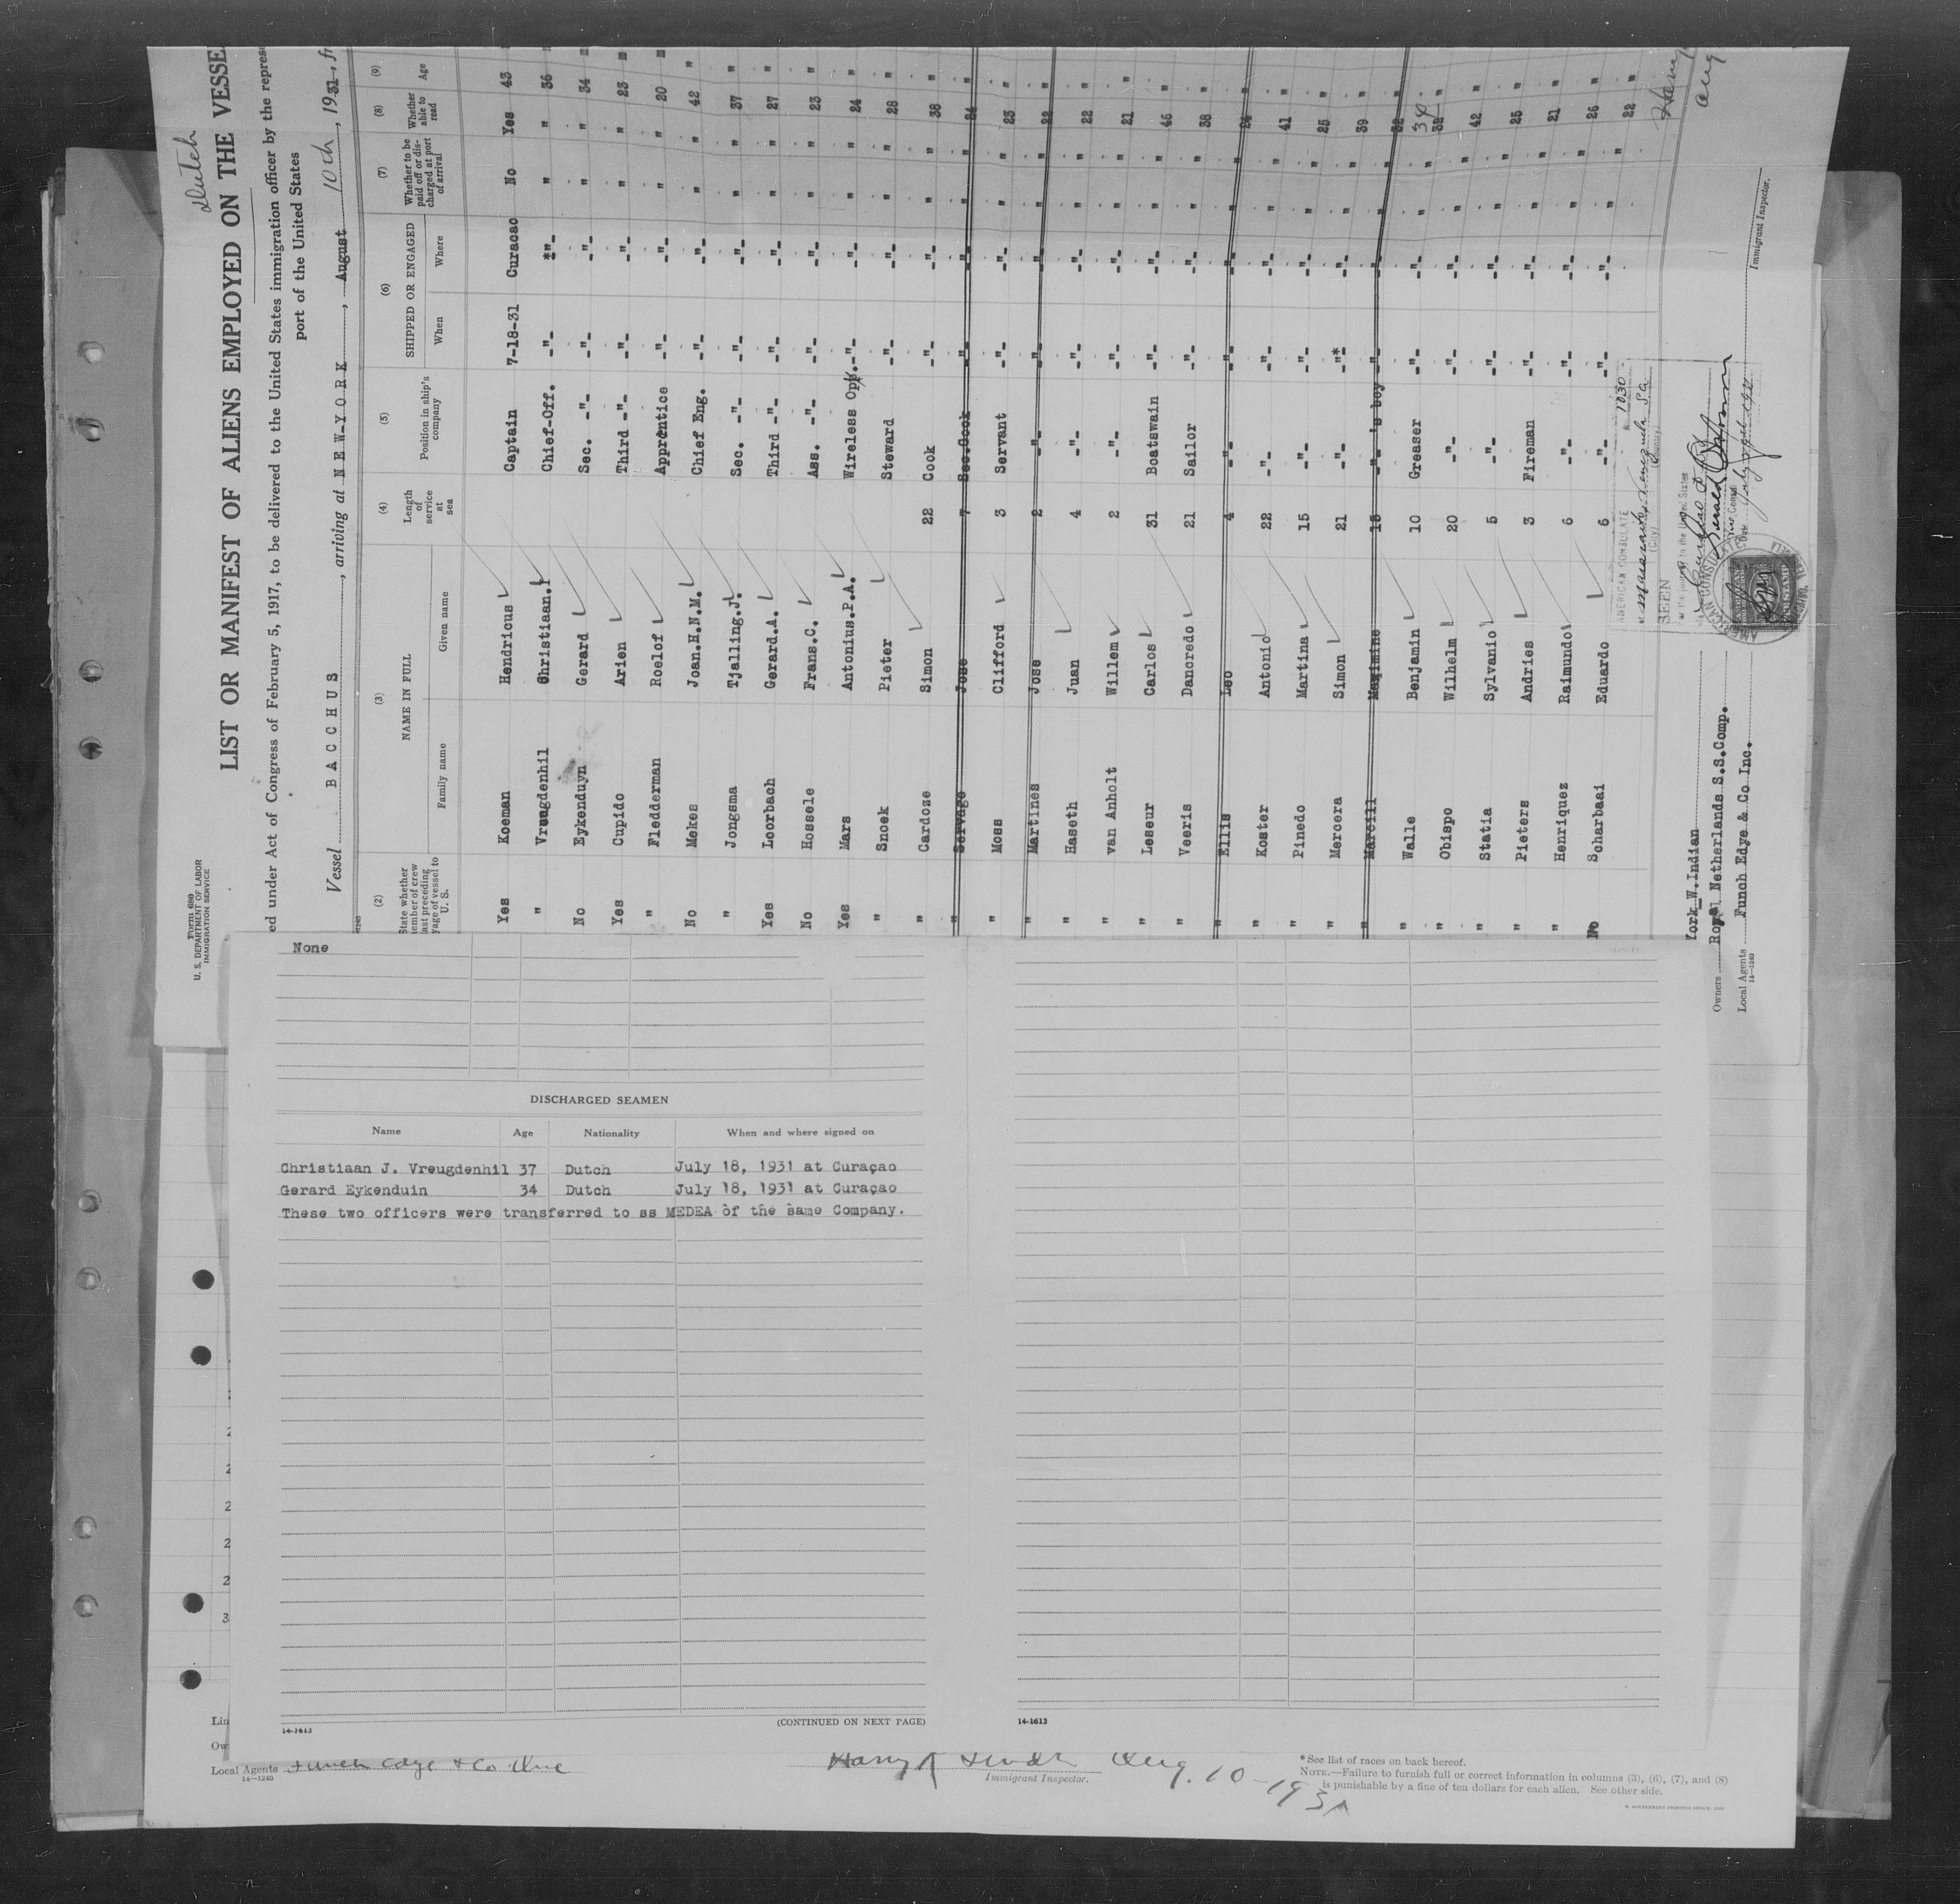 Form 680
U. S. DEPARTMENT OF LABOR
IMMIGRATION SERVICE
Dutch
LIST OR MANIFEST OF ALIENS EMPLOYED ON THE VESSE
ed under Act of Congress of February 5, 1917, to be delivered to the United States immigration officer by the represe
port of the United States
Vessel BACCHUS, arriving at NEW-YORK, August 10th, 1931, fr
(2) (3) (4) (5) (6) (7) (8) (9)
State whether member of crew last preceding voyage of vessel to U. S. NAME IN FULL Family name Given name Length of service at sea Position in ship's company SHIPPED OR ENGAGED When Where Whether to be paid off or discharged at port of arrival Whether able to read Age
Yes Koeman Hendricus Captain 7-18-31 Curacao No Yes 43
" Vreugdenhil Christiaan.J Chief-Off. -"- -"- " " 36
No Eykenduyn Gerard Sec. -"- -"- -"- " " 34
Yes Cupido Arien Third -"- -"- -"- " " 23
" Fledderman Roelof Apprentice -"- -"- " " 20
No Mekes Joan.H.N.M. Chief Eng. -"- -"- " " 42
" Jongsma Tjalling.J. Sec. -"- -"- -"- " " 37
Yes Loorbach Gerard.A. Third -"- -"- -"- " " 27
No Hossele Frans.C. Ass. -"- -"- -"- " " 23
Yes Mars Antonius.P.A. Wireless Opp. -"- -"- " " 24
" Snoek Pieter Steward -"- -"- " " 28
" Cardoze Simon 22 Cook -"- -"- " " 38
" Servage Jose 7 Sec.Cook -"- -"- " " 24
" Moss Clifford 3 Servant -"- -"- " " 23
" Martines Jose 2 -"- -"- -"- " " 22
" Haseth Juan 4 -"- -"- -"- " " 22
" van Anholt Willem 2 -"- -"- -"- " " 21
" Leseur Carlos 31 Boatswain -"- -"- " " 46
" Veeris Dancredo 21 Sailor -"- -"- " " 38
" Ellis Leo 4 -"- -"- -"- " " 24
" Koster Antonio 22 -"- -"- -"- " " 41
" Pinedo Martina 15 -"- -"- -"- " " 25
" Mercera Simon 21 -"- -"- -"- " " 39
" Marcill Maximine 18 -"- 's boy -"- -"- " " 32
" Walle Benjamin 10 Greaser -"- -"- " " 38 34
" Obispo Wilhelm 20 -"- -"- -"- " " 42
" Statia Sylvanio 5 -"- -"- -"- " " 25
" Pieters Andries 3 Fireman -"- -"- " " 21
" Henriquez Raimundo 6 -"- -"- -"- " " 26
No Scharbaai Eduardo 6 -"- -"- -"- " " 22
AMERICAN CONSULATE
1030
Maracaibo, Venezuela
(City) (Country)
SEEN
York W.Indian
Owners Royal Netherlands S.S.Comp.
Local Agents Funch Edye & Co. Inc.
14-1240
Immigrant Inspector.
None
DISCHARGED SEAMEN
Name Age Nationality When and where signed on
Christiaan J. Vreugdenhil 37 Dutch July 18, 1931 at Curaçao
Gerard Eykenduin 34 Dutch July 18, 1931 at Curaçao
These two officers were transferred to ss MEDEA of the same Company.
14-1613
(CONTINUED ON NEXT PAGE)
14-1613
Lin
Ow
Local Agents Funch Edye & Co Inc
14-1240
Immigrant Inspector.
Aug. 10-1931
*See list of races on back hereof.
NOTE.—Failure to furnish full or correct information in columns (3), (6), (7), and (8)
is punishable by a fine of ten dollars for each alien. See other side.